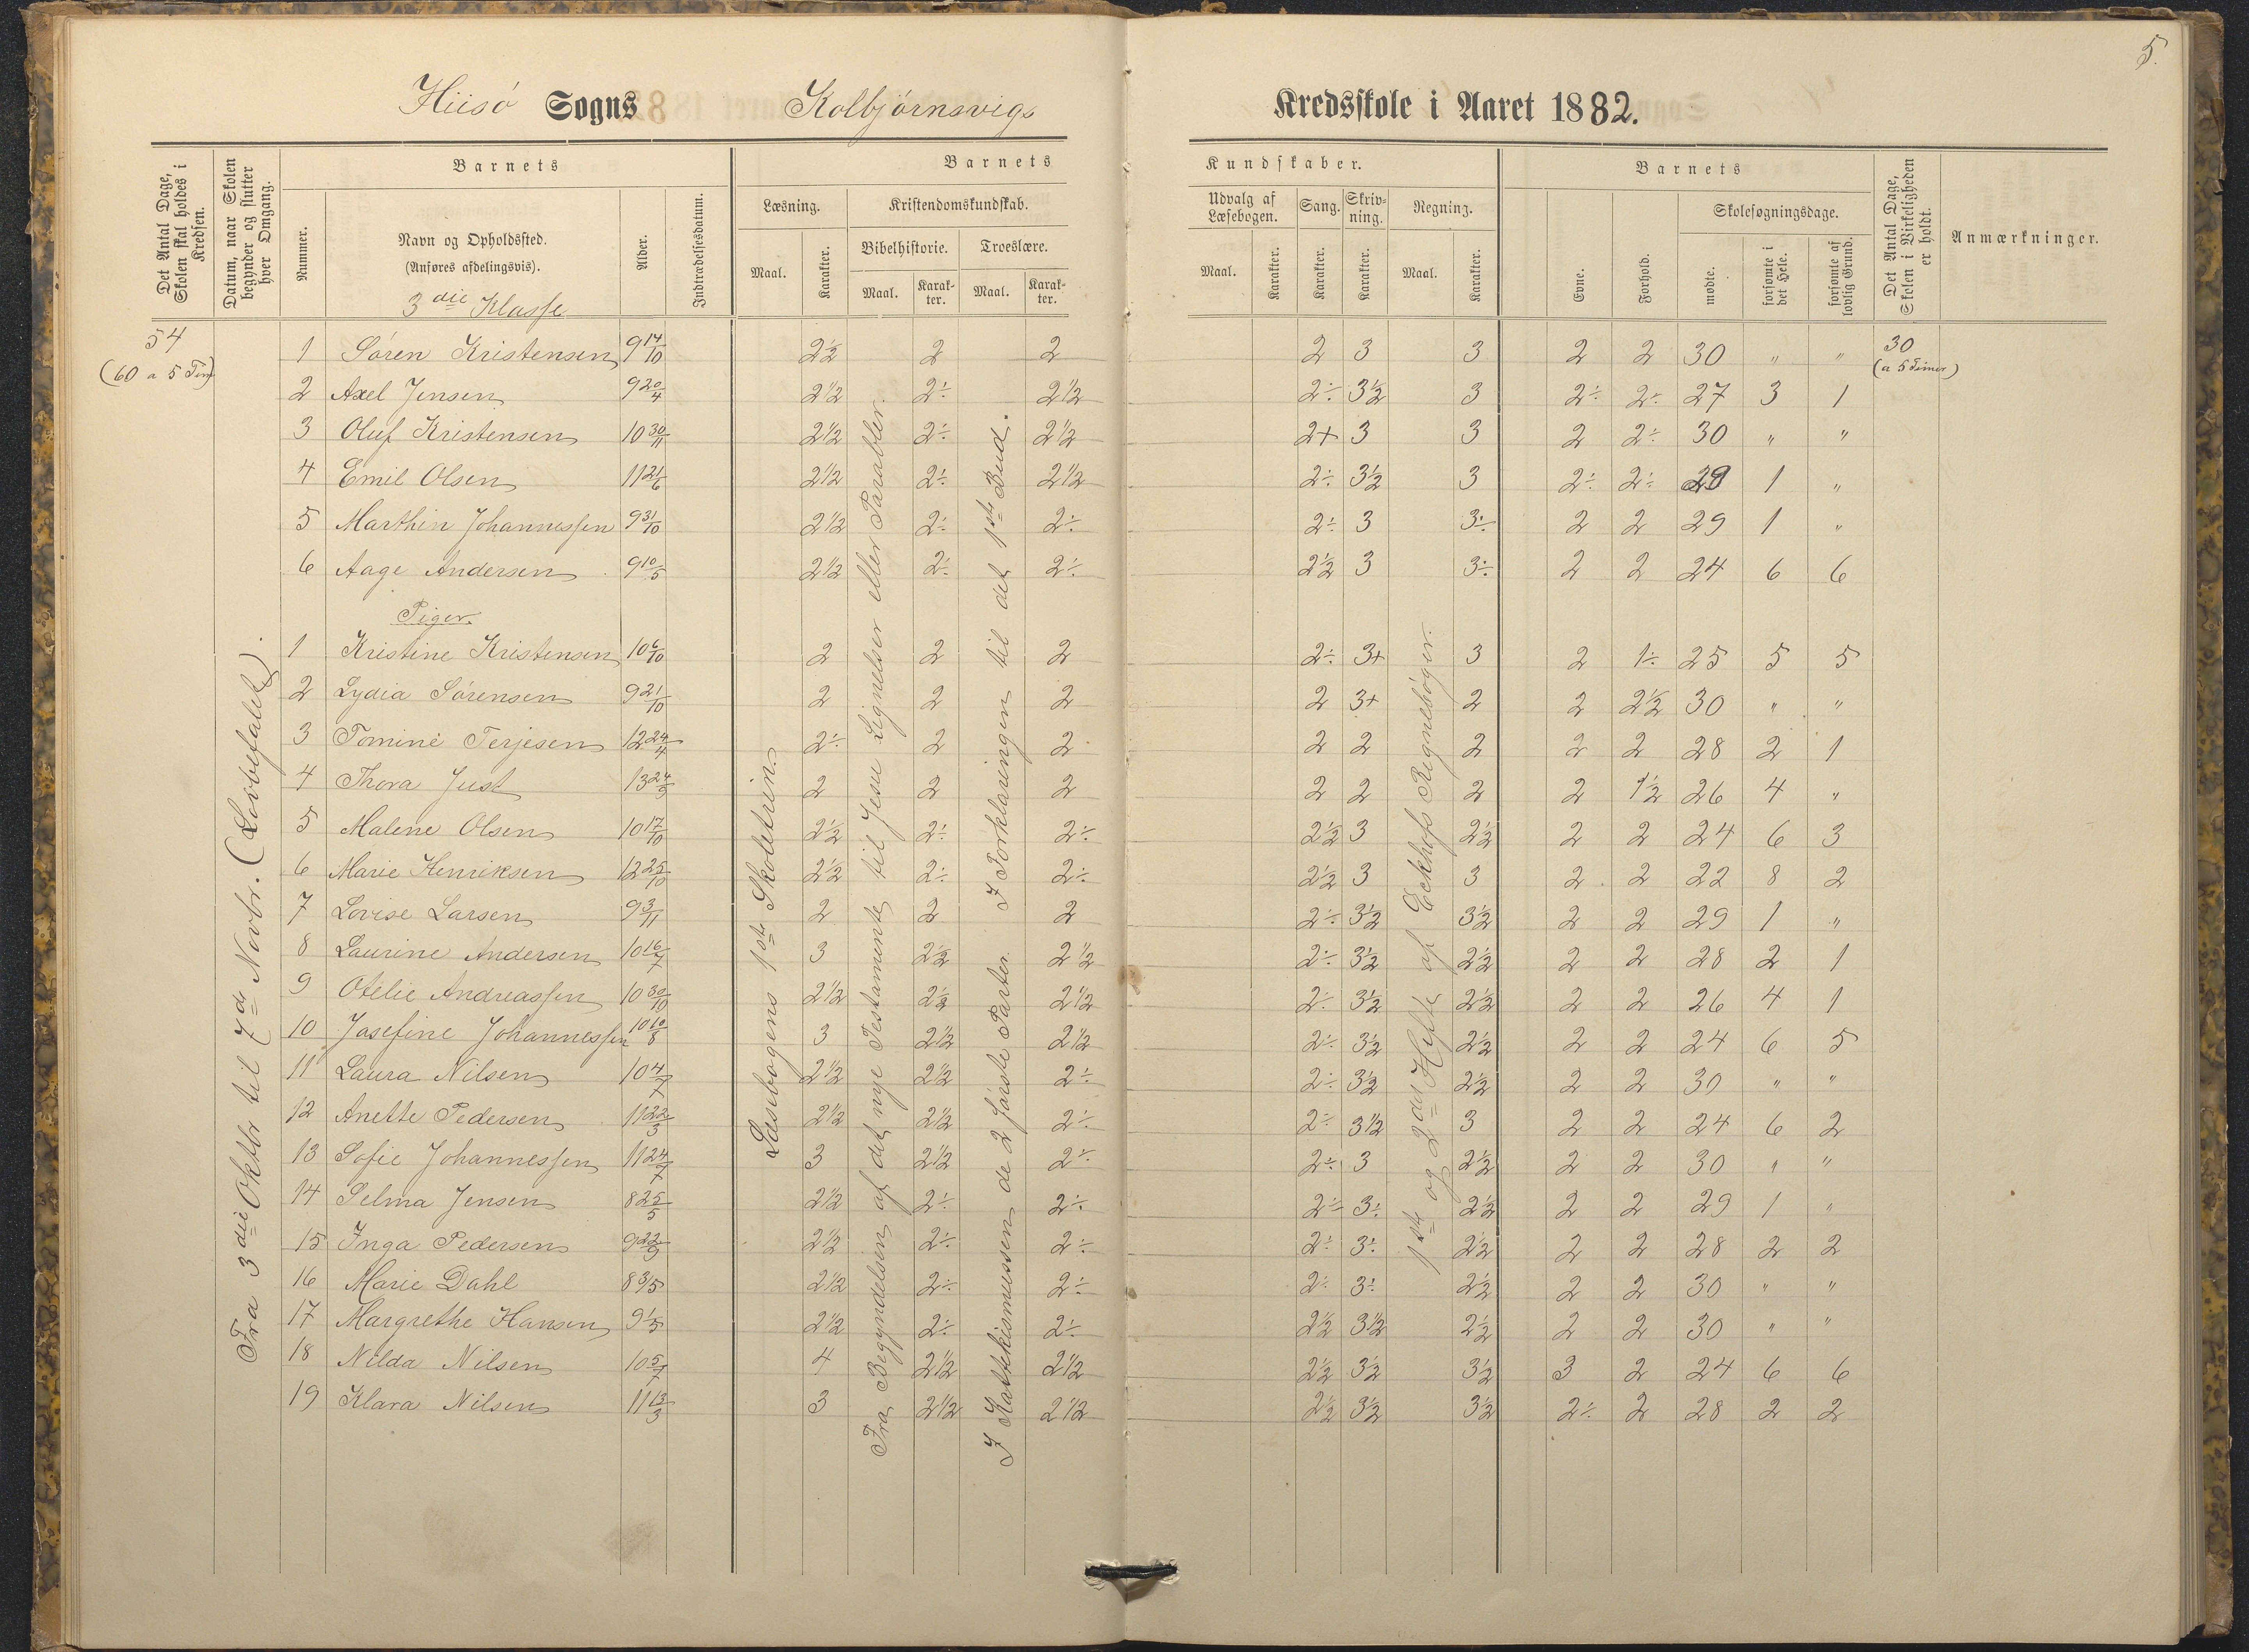 5.
Hiisö Sogns Kolbjörnsvigs Kredsskole i Aaret 1882.
Det Antal Dage, Skolen skal holdes i Kredsen.
Datum, naar Skolen begynder og slutter hver Omgang.
Barnets
Nummer.
Navn og Opholdssted.
(Anføres afdelingsvis).
3die Klasse
Alder.
Indtrædelsesdatum.
Barnets Kundskaber.
Læsning.
Maal.
Karakter.
Kristendomskundskab.
Bibelhistorie.
Maal.
Karakter.
Troeslære.
Maal.
Karakter.
Udvalg af Læsebogen.
Maal.
Karakter.
Sang.
Karakter.
Skrivning.
Karakter.
Regning.
Maal.
Karakter.
Barnets
Evne.
Forhold.
Skolesøgningsdage.
mødte.
forsømte i det Hele.
forsømte af lovlig Grund.
Det Antal Dage, Skolen i Virkeligheden er holdt.
Anmærkninger.
54
(60 a 5 Tim)
30
(a 5 Timer)
Fra 3die Oktbr til 7de Novbr. (Lovbefalet).
Læsebogens 1ste Skoletrin.
Fra Begyndelsen af det nye Testamente til Jesu Lignelser eller Parabler.
I Kattekismussen de 2 første Parter. I Forklaringen til det 1ste Bud.
1ste og 2det Hefte af Eckhofs Regnebøger.
1 Sören Kristensen 9 14/10 2½ 2 2 2 3 3 2 2 30 " "
2 Axel Jensen 9 20/4 2½ 2÷ 2½ 2÷ 3½ 3 2÷ 2÷ 27 3 1
3 Oluf Kristensen 10 30/11 2½ 2÷ 2½ 2+ 3 3 2 2÷ 30 " "
4 Emil Olsen 11 21/6 2½ 2÷ 2½ 2÷ 3½ 3 2÷ 2÷ 29 1 "
5 Marthin Johannessen 9 31/10 2½ 2÷ 2÷ 2÷ 3 3÷ 2 2 29 1 "
6 Aage Andersen 9 10/5 2½ 2÷ 2÷ 2½ 3 3÷ 2 2 24 6 6
Piger.
1 Kristine Kristensen 10 6/10 2 2 2 2÷ 3+ 3 2 1÷ 25 5 5
2 Lydia Sörensen 9 21/10 2 2 2 2 3+ 2 2 2½ 30 " "
3 Tomine Terjesen 12 24/4 2÷ 2 2 2 2 2 2 2 28 2 1
4 Thora Just 13 24/9 2 2 2 2 2 2 2 1½ 26 4 "
5 Malene Olsen 10 17/10 2½ 2÷ 2÷ 2½ 3 2½ 2 2 24 6 3
6 Marie Henriksen 12 25/10 2½ 2÷ 2÷ 2½ 3 3 2 2 22 8 2
7 Lovise Larsen 9 3/11 2 2 2 2÷ 3½ 3½ 2 2 29 1 "
8 Laurine Andersen 10 16/7 3 2½ 2½ 2÷ 3½ 2½ 2 2 28 2 1
9 Otelie Andreassen 10 30/10 2½ 2½ 2½ 2÷ 3½ 2½ 2 2 26 4 1
10 Josefine Johannessen 10 10/8 3 2½ 2½ 2÷ 3½ 2½ 2 2 24 6 5
11 Laura Nilsen 10 4/7 2½ 2½ 2÷ 2÷ 3½ 2½ 2 2 30 " "
12 Anette Pedersen 11 22/3 2½ 2½ 2÷ 2÷ 3½ 3 2 2 24 6 2
13 Sofie Johannessen 11 24/7 3 2½ 2÷ 2÷ 3 2½ 2 2 30 " "
14 Selma Jensen 8 25/5 2½ 2÷ 2÷ 2÷ 3÷ 2½ 2 2 29 1 "
15 Inga Pedersen 9 22/9 2½ 2÷ 2÷ 2÷ 3÷ 2½ 2 2 28 2 2
16 Marie Dahl 8 3/5 2½ 2÷ 2÷ 2÷ 3÷ 2½ 2 2 30 " "
17 Margrethe Hansen 9 1/5 2½ 2÷ 2÷ 2½ 3½ 2½ 2 2 30 " "
18 Nilda Nilsen 10 5/7 4 2½ 2½ 2½ 3½ 3½ 3 2 24 6 6
19 Klara Nilsen 11 13/3 3 2½ 2½ 2½ 3½ 3½ 2÷ 2 28 2 2